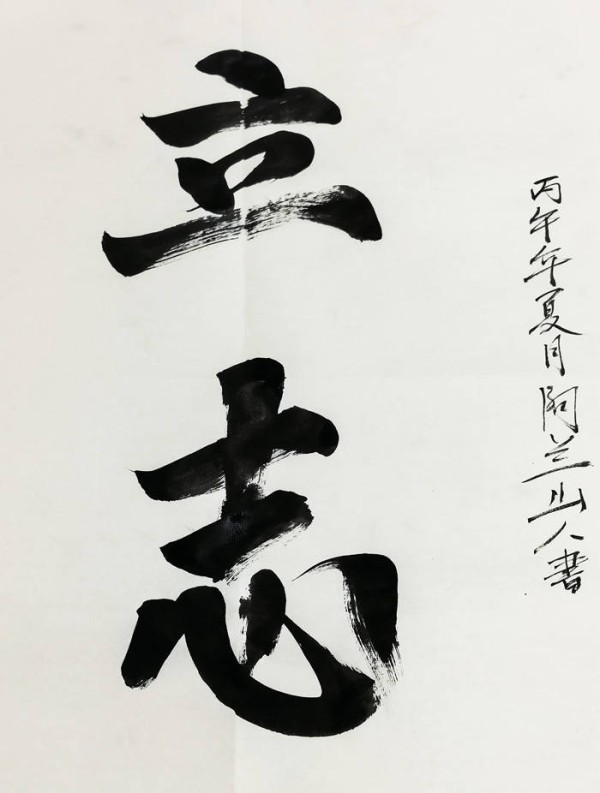 立志
丙午年夏月阁兰山人書